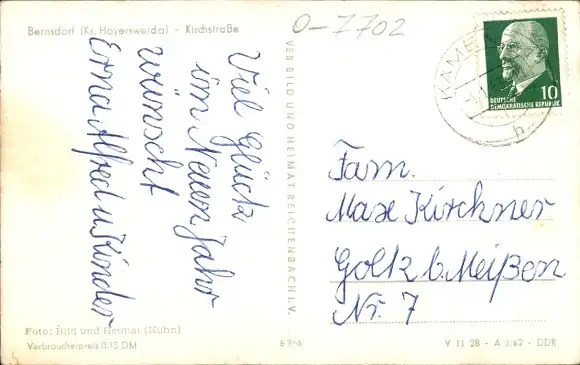 Bernsdorf (Kr. Hoyerswerda) - Kirchstraße
O-7702
Viel Glück
im Neuen Jahr
wünscht
Erna Alfred u Kinder
VEB BILD UND HEIMAT REICHENBACH I. V.
KAMENZ
h
10
DEUTSCHE
DEMOKRATISCHE REPUBLIK
Fam.
Max Kirchner
Goltz b. Meißen
Nr. 7
Foto: Bild und Heimat (Kühn)
Verbraucherpreis 0.15 DM
V 11 28 - A 3/62 - DDR